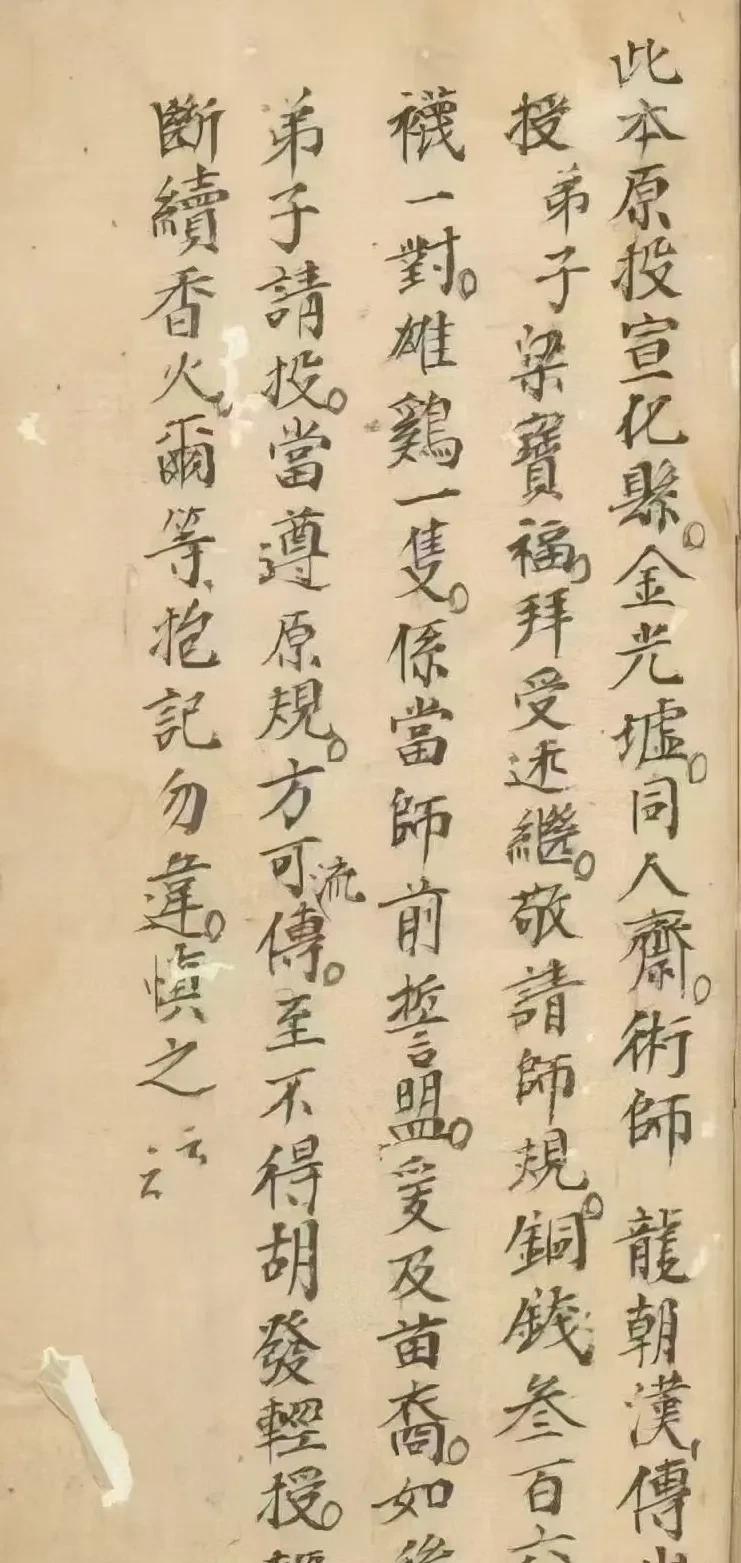 此本原投宣化縣。金光墟。同人齋。術師 龍朝漢，傳
授 弟子梁寶福，拜受述繼。敬請師規。銅錢叁百六
襪一對。雄鷄一隻。係當師前誓盟。爰及苗裔。如後
弟子請投。當遵原規。方可流傳。至不得胡發輕授。
斷續香火，爾等抱記勿違。慎之云云